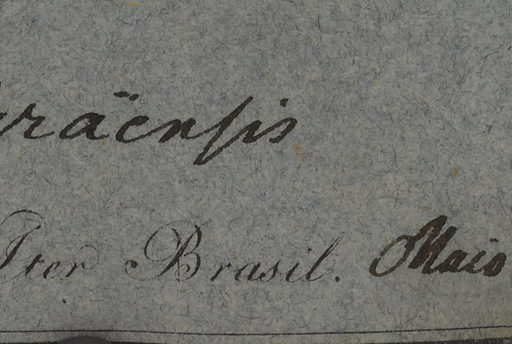 raënsis
Iter Brasil. Maio